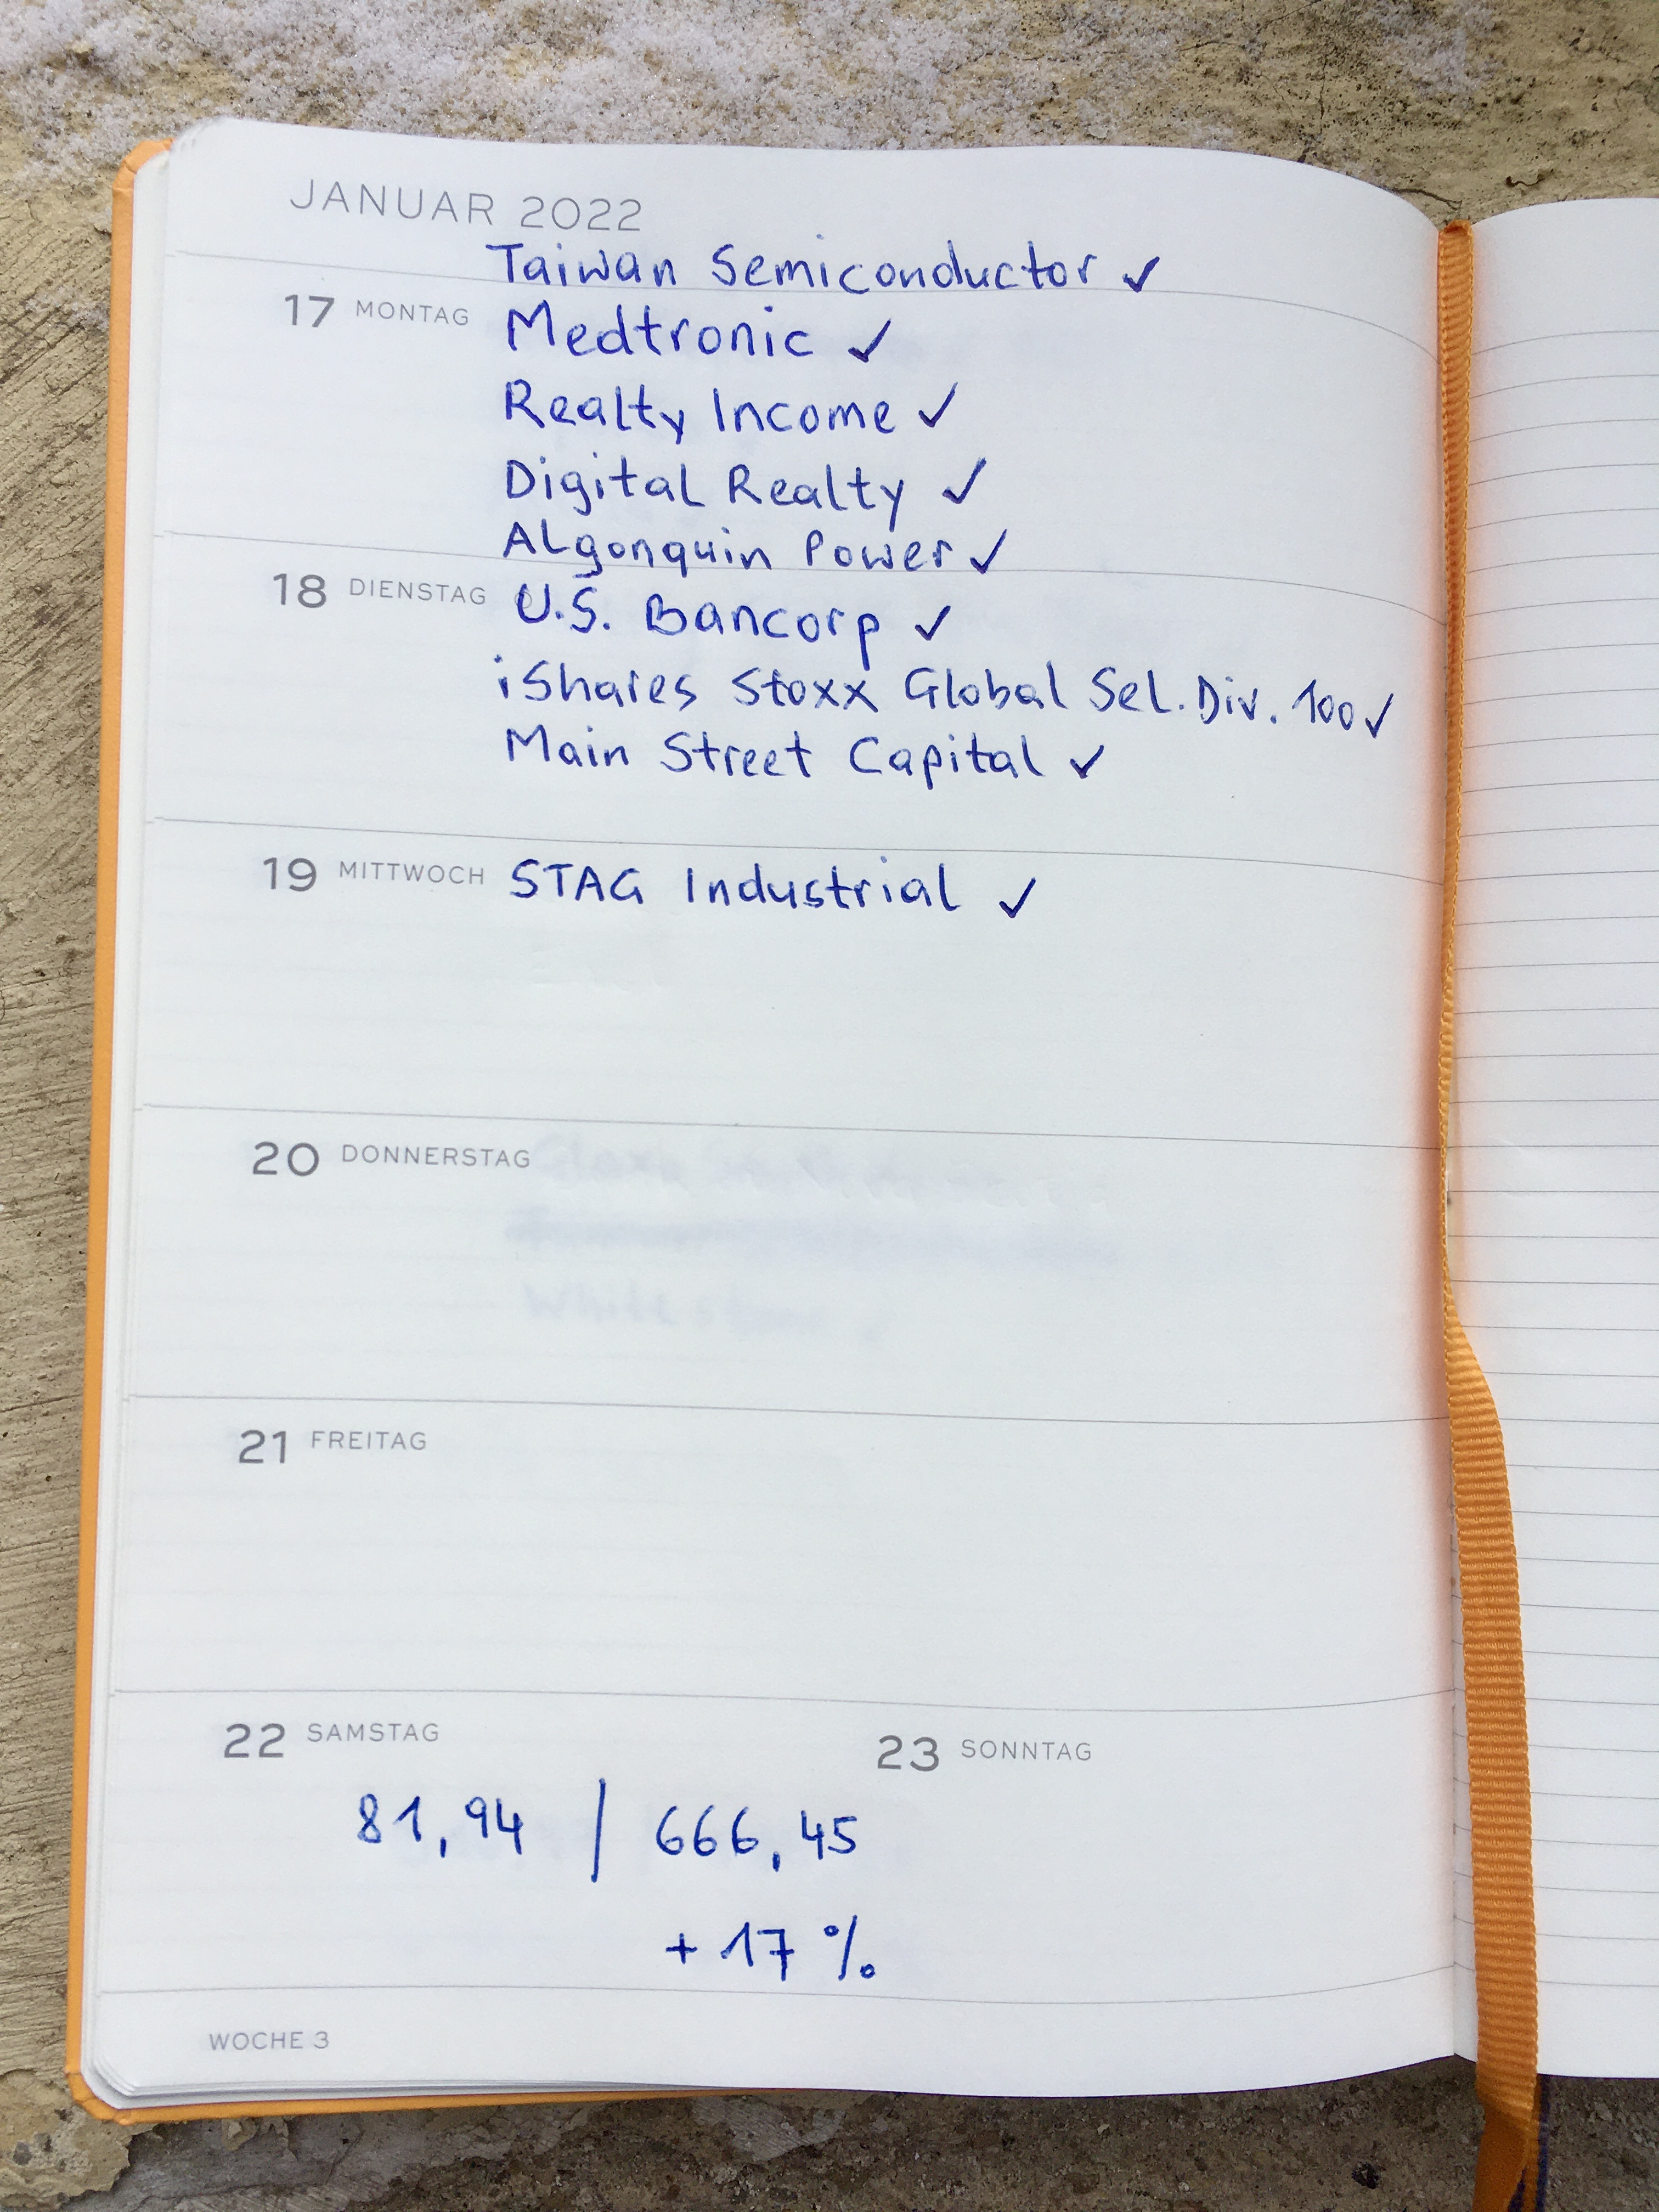 JANUAR 2022
Taiwan Semiconductor ✓
17 MONTAG Medtronic ✓
Realty Income ✓
Digital Realty ✓
Algonquin Power ✓
18 DIENSTAG U.S. Bancorp ✓
iShares Stoxx Global Sel. Div. 100 ✓
Main Street Capital ✓
19 MITTWOCH STAG Industrial ✓
20 DONNERSTAG
21 FREITAG
22 SAMSTAG 23 SONNTAG
81,94 / 666,45
+ 17 %
WOCHE 3